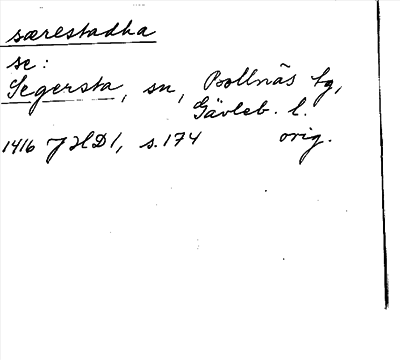 særestadha
se:
Segersta, sn, Bollnäs tg,
Gävleb. l.
1416 JHD1, s. 174 orig.